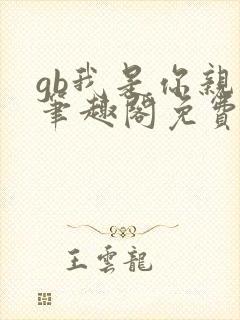 gb我是你親
筆趣閣免費
王雲龍